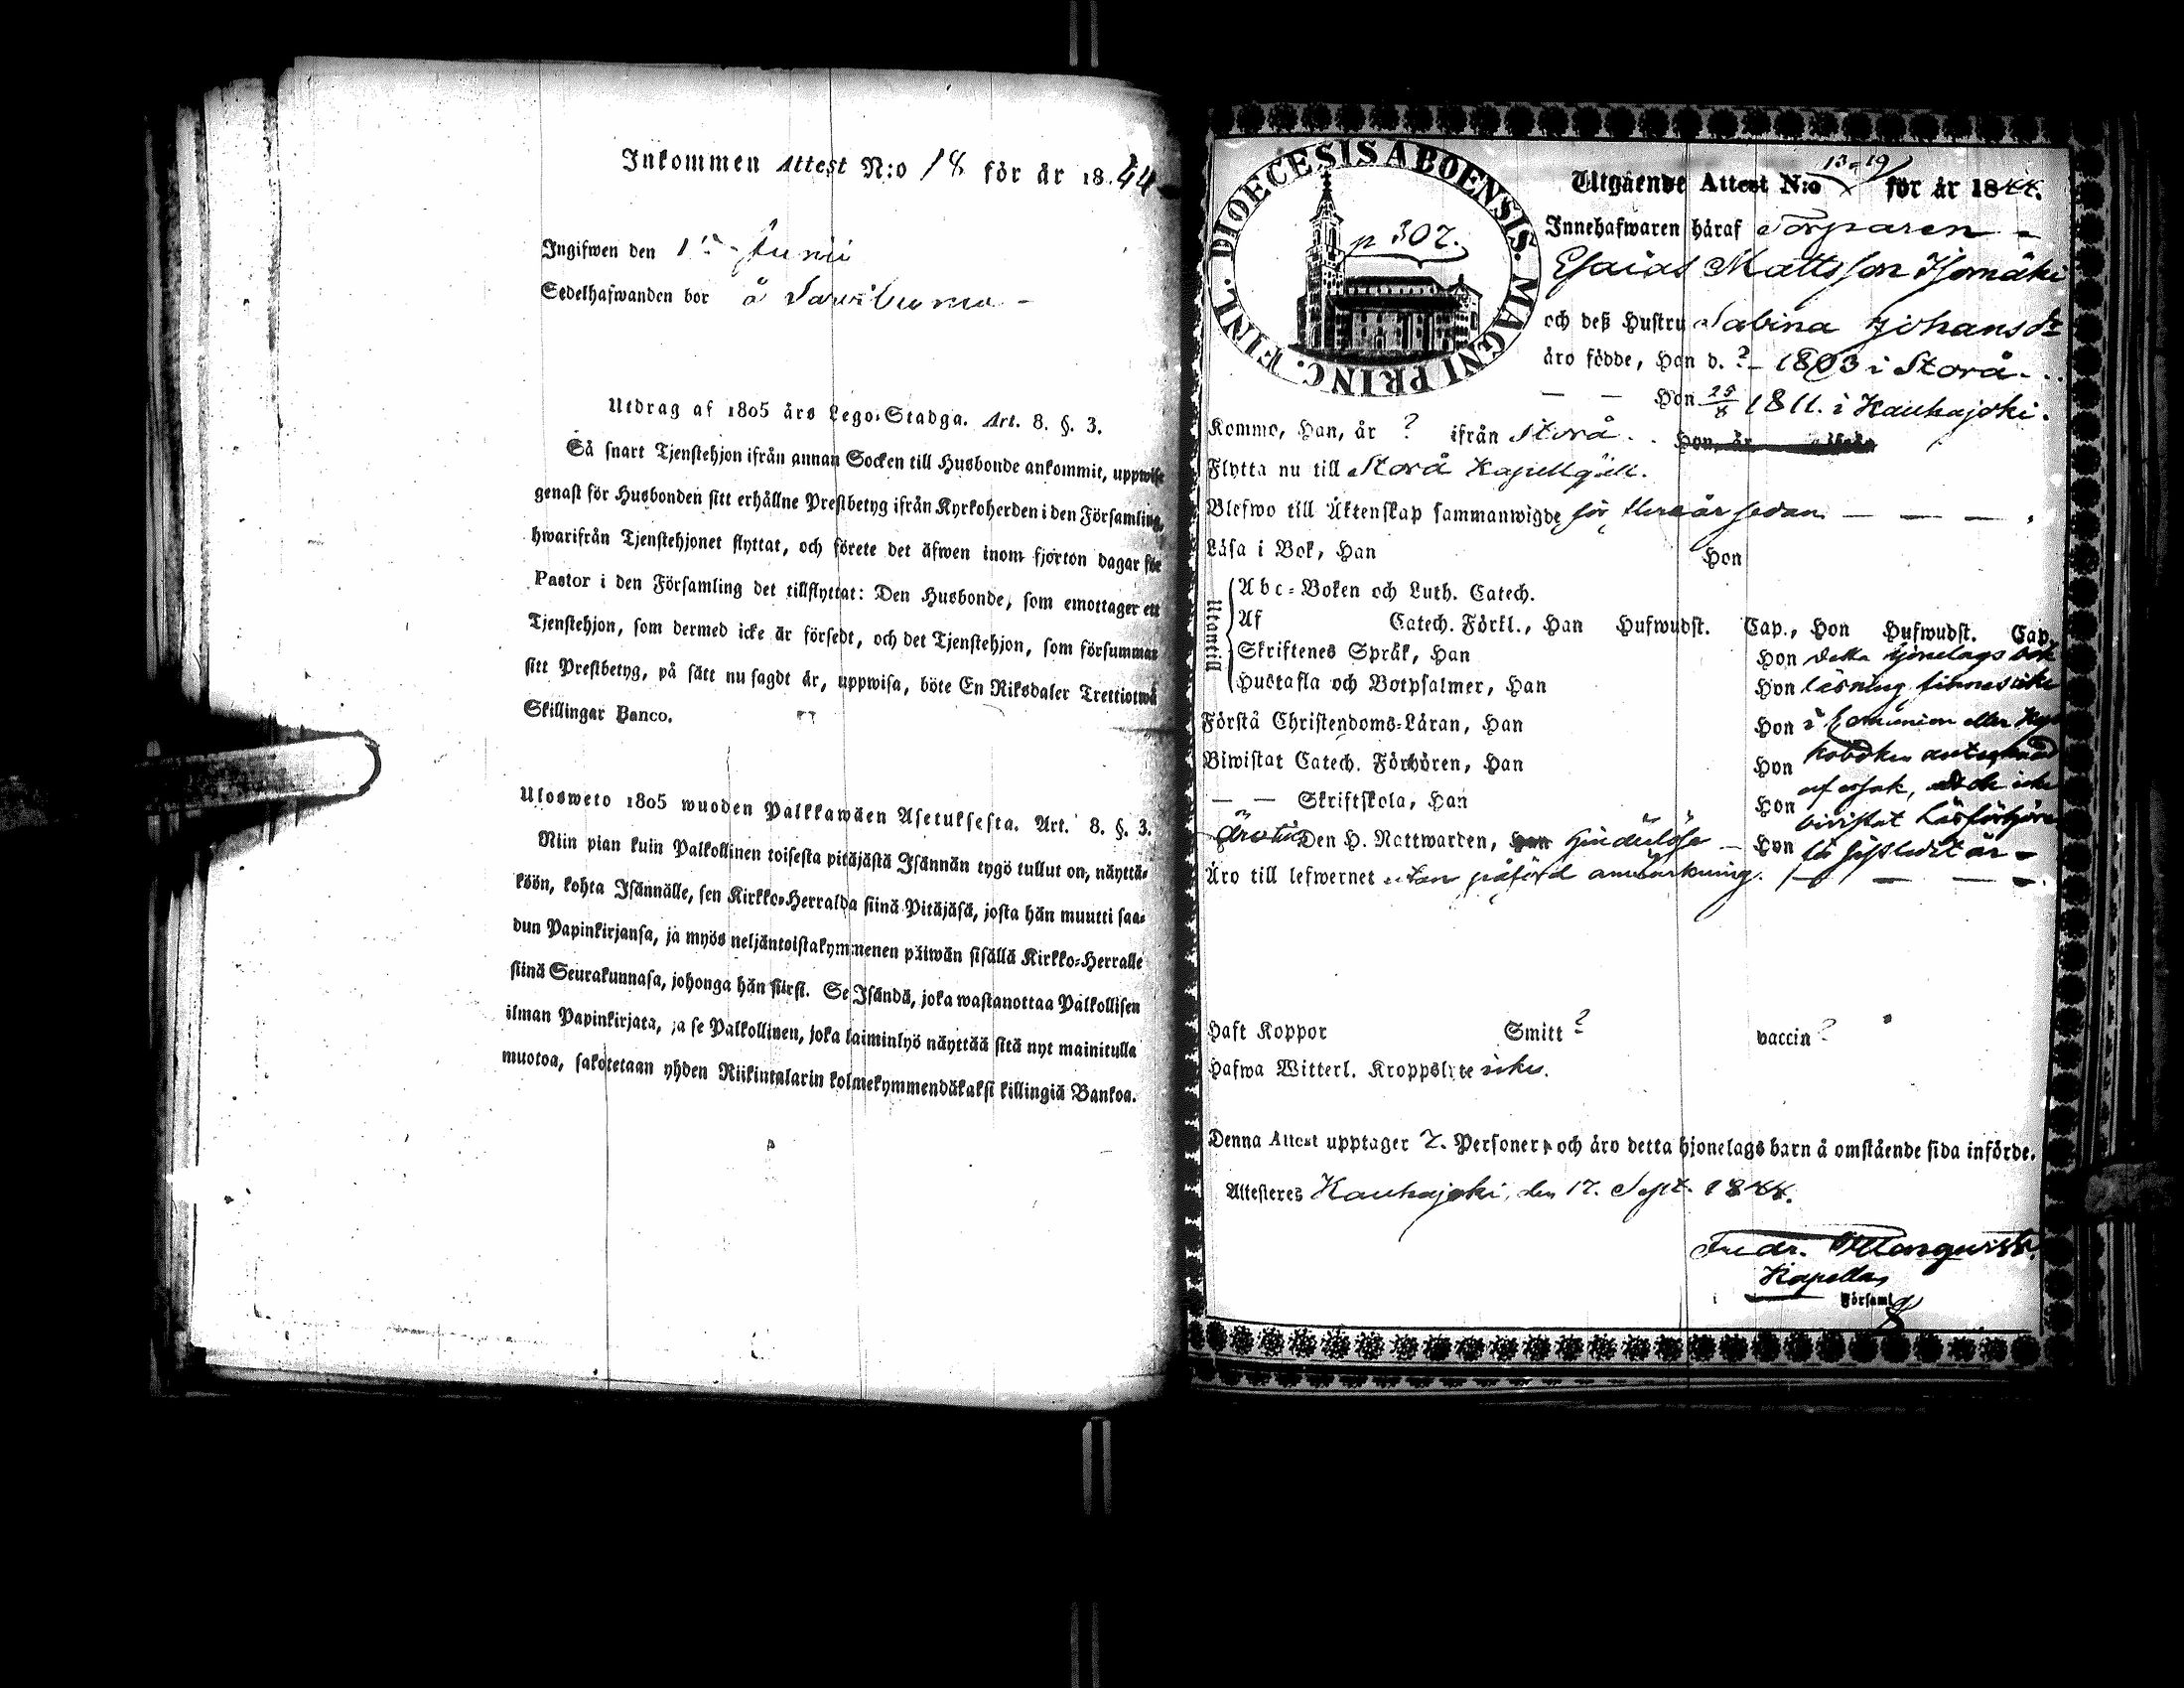 Inkommen Attest N:o 18 för år 1844
Ingifwen den 1 Junii
Sedelhafwanden bor å
Utdrag af 1805 års Lego-Stadga. Art. 8. §. 3.
Så snart Tjenstehjon ifrån annan Socken till Husbonde ankommit, uppwise
genast för Husbonden sitt erhållne Prestbetyg ifrån Kyrkoherden i den Församling,
hwarifrån Tjenstehjonet flyttat, och förete det äfwen inom fjorton dagar för
Pastor i den Församling det tillflyttat: Den Husbonde, som emottager ett
Tjenstehjon, som dermed icke är försedt, och det Tjenstehjon, som försummar
sitt Prestbetyg, på sätt nu sagdt är, uppwisa, böte En Riksdaler Trettiotwå
Skillingar Banco.
Ulosweto 1805 wuoden Palkkawäen Asetuksesta. Art. 8. §. 3.
Niin pian kuin Palkollinen toisesta pitäjästä Isännän tygö tullut on, näyttä-
köön, kohta Isännälle, sen Kirkko-Herralda siinä Pitäjäsä, josta hän muutti saa-
dun Papinkirjansa, ja myös neljäntoistakymmenen päiwän sisällä Kirkko-Herralle
siinä Seurakunnasa, johonga hän siirsi. Se Isändä, joka wastanottaa Palkollisen
ilman Papinkirjata, ja se Palkollinen, joka laiminlyö näyttää sitä nyt mainitulla
muotoa, sakotetaan yhden Riikintalarin kolmekymmendäkaksi killingiä Bankoa.
DIOECESIS ABOENSIS. MAGNI PRINC. FINL.
p 307.
Utgående Attest N:o 13-19 för år 1844.
Innehafwaren häraf Torparen
Esaias Mattsson Isomäki
och deß Hustru Sabina Johansdr
äro födde, Han d. ? 1803 i Storå.
— — Hon 25/8 1811. i Kauhajoki.
Kommo, Han, år ? ifrån Storå. Hon, år
Flytta nu till Storå Kapellgäll.
Blefwo till Äktenskap sammanwigde för flera år sedan.
Läsa i Bok, Han Hon
Utantill
Abc-Boken och Luth. Catech.
Af Catech. Förkl., Han Hufwudst. Cap., Hon Hufwudst. Cap.
Skriftenes Språk, Han Hon detta hjonelags bok
Hustafla och Botpsalmer, Han Hon läsning finnes icke
Förstå Christendoms-Läran, Han Hon i Communion eller Kyr
Biwistat Catech. Förhören, Han Hon koboken antecknad
— — Skriftskola, Han Hon af orsak, att de icke
biwistat Läsförhören
Äro till Den H. Nattwarden, hinderlöse — Hon för sistledit år
Äro till lefwernet utan påförd anmärkning.
Haft Koppor Smitt ? vaccin ?
Hafwa Witterl. Kroppslyte icke.
Denna Attest upptager 7. Personer, och äro detta hjonelags barn å omstående sida införde.
Attesteres Kauhajoki, den 17. Sept. 1844.
Fredr.
Kapellan
Församl